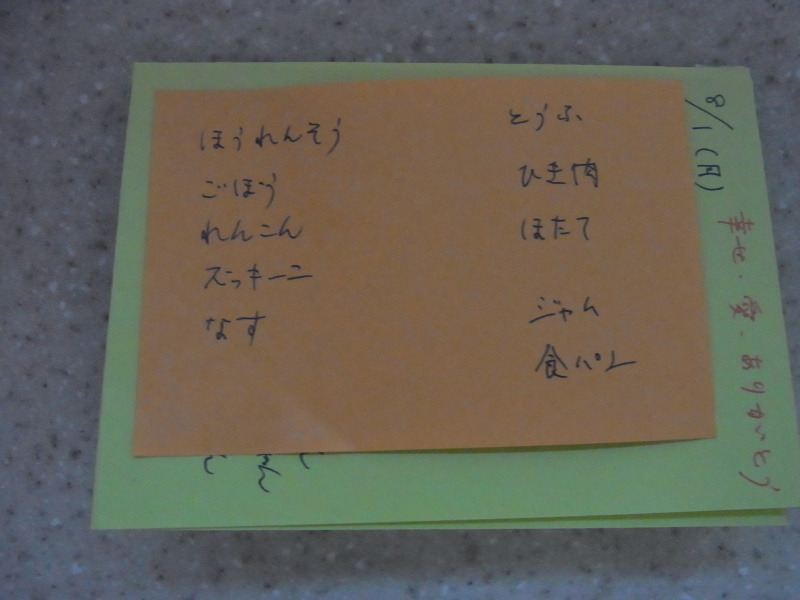 ほうれんそう
ごぼう
れんこん
ズッキーニ
なす
とうふ
ひき肉
ほたて
ジャム
食パン
8/1(月)
幸せ・愛・ありがとう